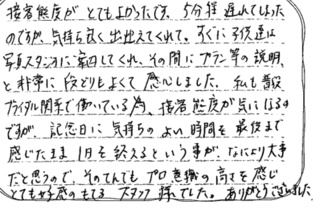 接客態度がとてもよかったです。5分程遅れてしまった
のですが、気持ち良く出迎えてくれて。すぐに子供達は
写真スタジオに案内してくれ、その間にプラン等の説明、
と非常に段どりもよくて感心しました。私も普段
ブライダル関係で働いている為、接客態度が気になるの
ですが、記念日に気持ちのよい時間を最後まで
感じたまま1日を終えるという事が、なにより大事
だと思うので、その点でもプロ意識の高さを感じ
とても好感のもてるスタッフ様でした。ありがとうございました